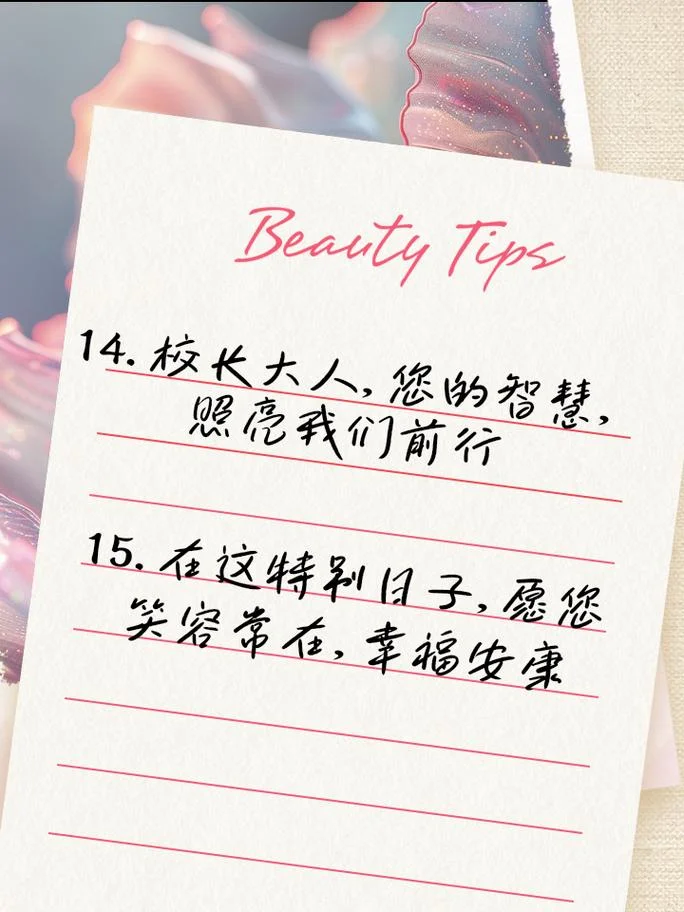 Beauty Tips
14. 校长大人,您的智慧,
照亮我们前行
15. 在这特别日子,愿您
笑容常在,幸福安康